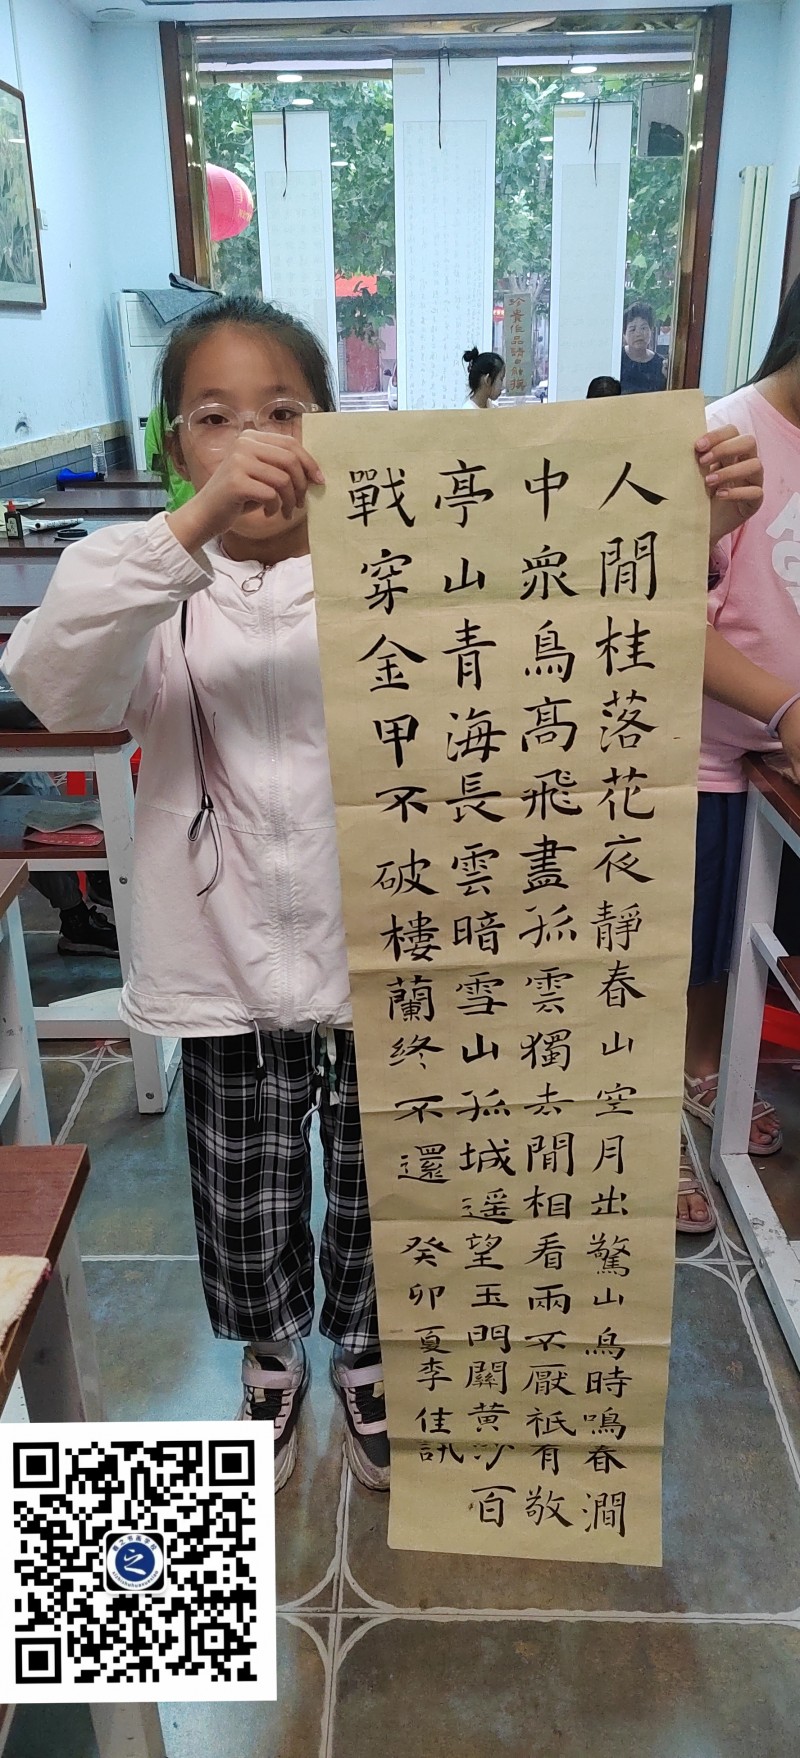 人閒桂落花夜靜春山空月出驚山鳥時鳴春澗
中衆鳥髙飛盡孤雲獨去閒相看兩不厭祇有敬
亭山青海長雲暗雪山孤城遥望玉門關黄沙百
戰穿金甲不破樓蘭終不還 癸卯夏李佳訊
珍貴作品請勿觸摸
之